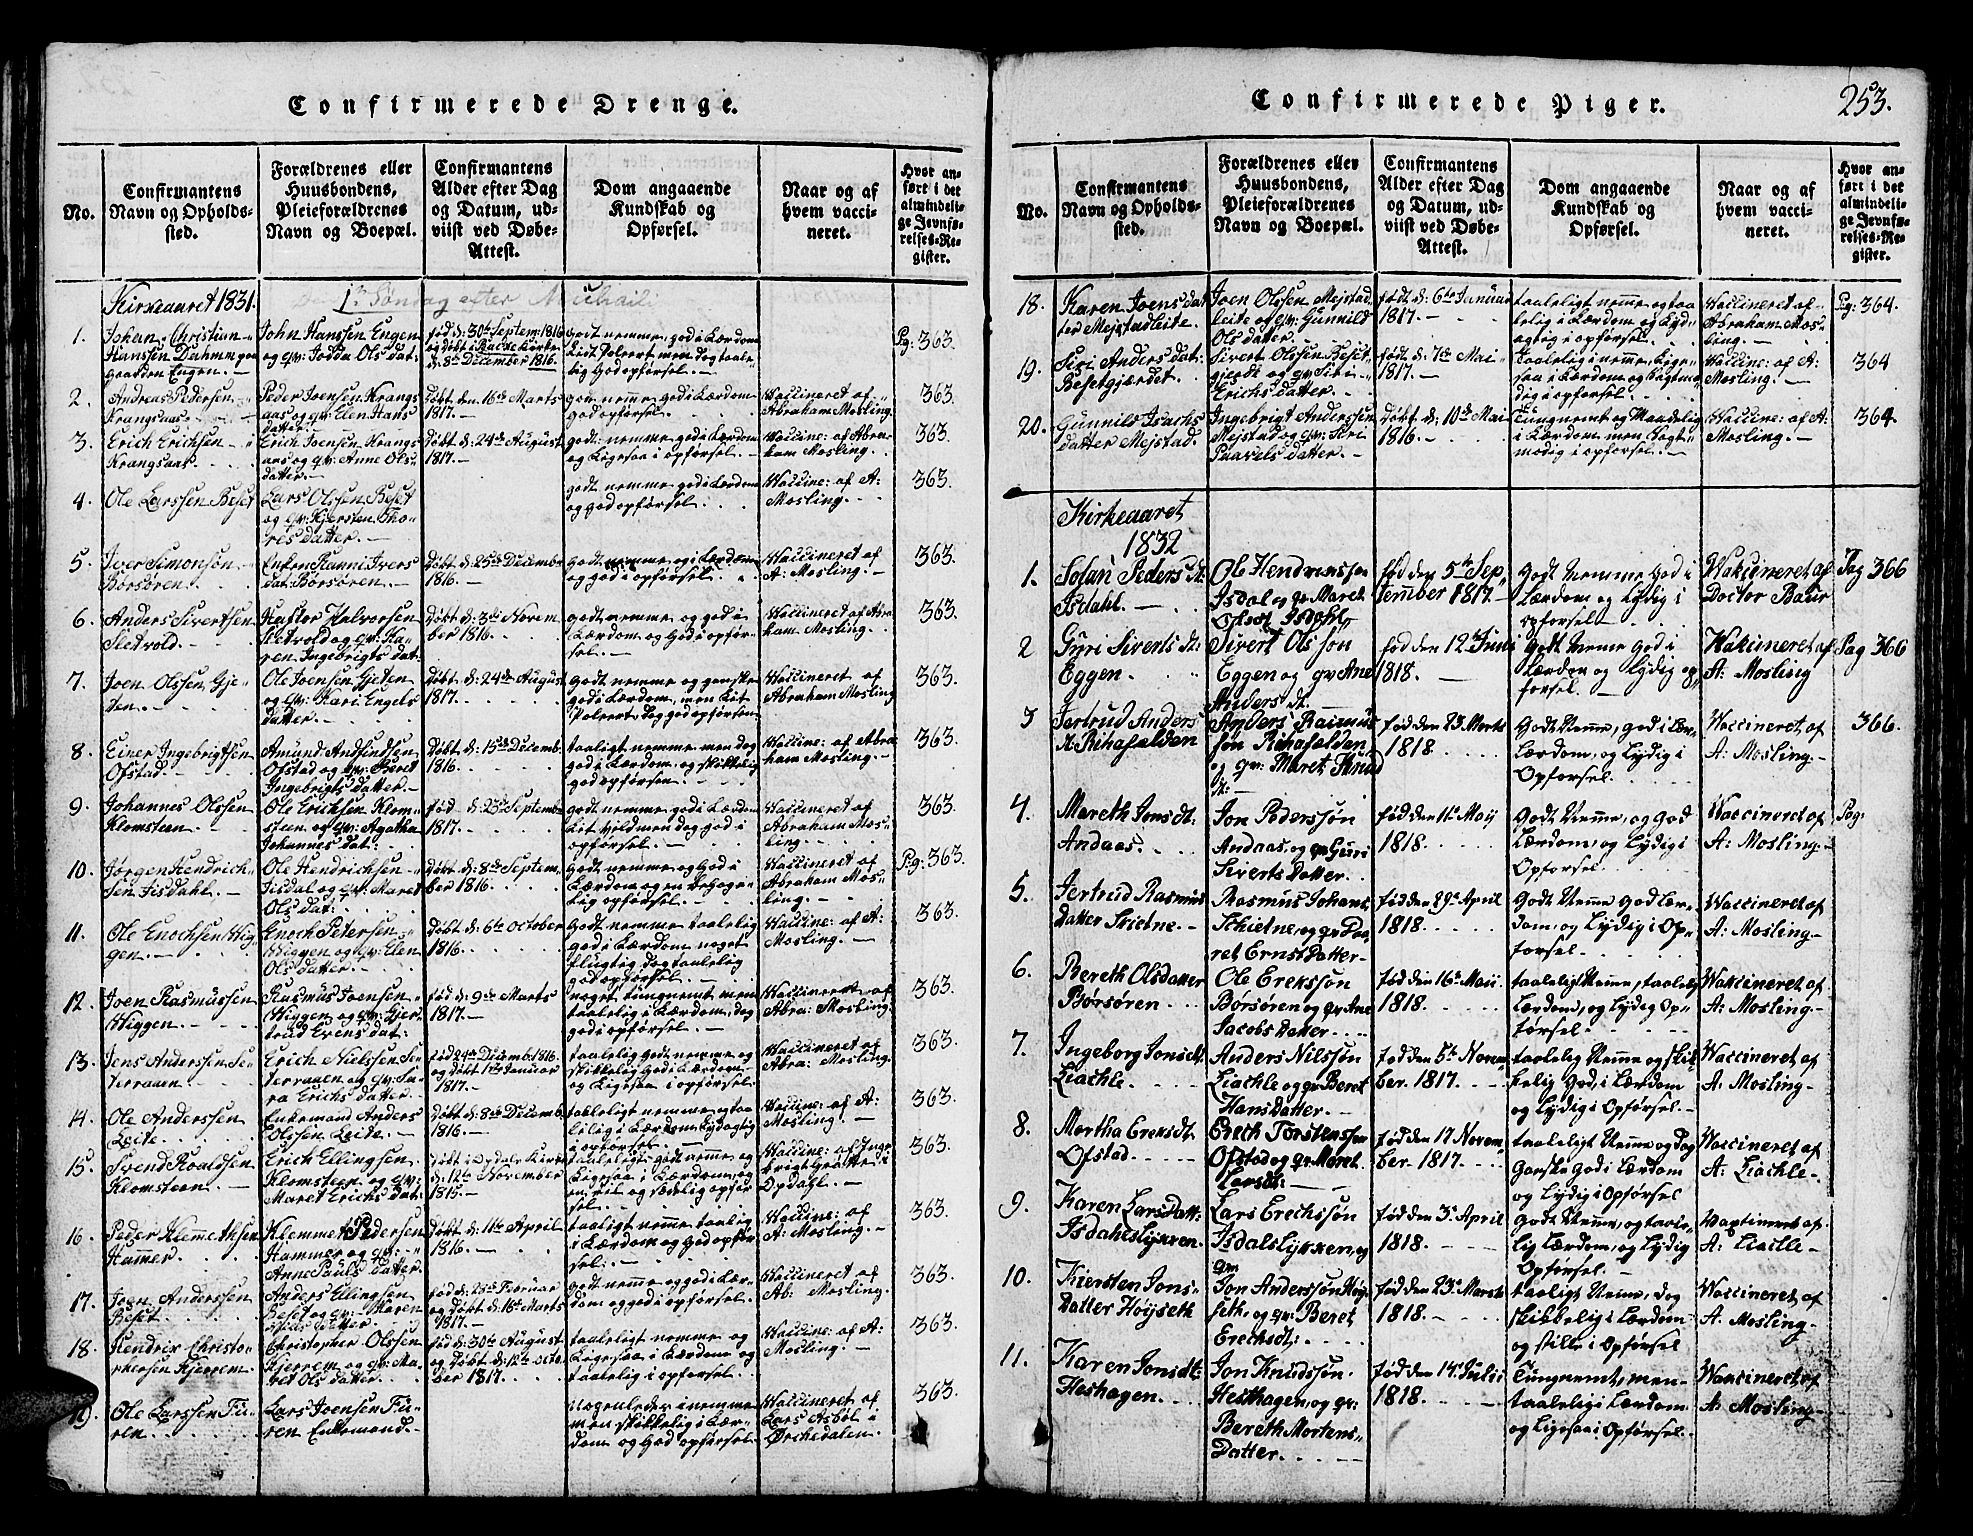 Confirmerede Drenge.
No.
Confirmantens
Navn og Opholds-
sted.
Forældrenes eller
Huusbondens,
Pleieforældrenes
Navn og Boepæl.
Confirmantens
Alder efter Dag
og Datum, ud-
viist ved Døbe-
Attest.
Dom angaaende
Kundskab og
Opførsel.
Naar og af
hvem vacci-
neret.
Hvor an-
ført i det
almindeli-
ge Jevnfø-
relses-Re-
gister.
Kirkeaaret 1831.
Søndag efter Michaili
1.
Johan Christian
Hanssen Dahm
gaarden Engen.
John Hanssen Engen
og qv: Ols dat:
fød d: 30te Septem: 1816
og døbt i Kirke
d: 8de December 1816.
godt nemme, god i Lærdom
god opførsel.
Pg: 363.
2.
Andreas Pedersen
Krangsaas.
Peder Joensen Krangs
aas og qv: Elen Hans
datter.
Døbt den 16de Marts
1817.
god nemme god i Lærdom
god opførsel.
Vaccineret af
Abraham Mosling.
363.
3.
Erich Erichsen
Krangsaas.
Erich Joensen Krangs
aas og qv: Anne Ols
datter.
Døbt d: 24de August
1817.
godt nemme, god i Lærdom
og Ligesaa i opførsel.
Vaccine: af Abra
ham Mosling.
363.
4.
Ole Larssen Beset
Lars Olssen Beset
og qv: Kjersten Tho-
res datter.
godt nemme god i Lærdom
og god opførsel.
Vaccine: af A:
Mosling.
363.
5.
Iver Simonsen
Börsören.
Enken Ranni Ivers
dat: Börsören.
Døbt d: 25de Decembe
1816.
godt nemme, og i Lærdom
og god i opførsel.
Vaccineret af
A: Mosling.
363.
6.
Anders Sivertsen
Sletvold.
Halvorsen
Sletvold og qv: Ka-
ren Ingebrigts dat:
Døbt d: 3de Novem
ber 1816.
godt nemme og god i
Lærdom og God i opfør-
sel.
Vaccineret af Abra
ham Mosling.
363.
7.
Joen Olssen Gje-
ten.
Ole Joensen Gjeten
og qv: Kari Engels
datter.
Døbt d: 24de August
1817.
godt nemme og ganske
god i Lærdom, men Lit
dog god opførsen
Vaccineret af
Abraham Mosling
363.
8.
Einer Ingebrigtsen
Ofstad.
Amund Andfindsen
Ofstad og qv: Beret
Ingebrigts datter.
Døbt d: 15de Decemb:
1816.
taaligt nemme men dog
god i Lærdom, og skikkelig
god opførsen
Vaccine: af Abra
ham Mosling.
363.
9.
Johannes Olssen
Klomsteen.
Ole Erichsen Klom-
steen og qv: Agatha
Johannes dat:
fød d: 23de Septemb
1817.
godt nemme god i Lærdom
Lit vild men dog god i
opførsel.
Vaccineret af
Abraham Mos-
ling.
363.
10.
Jørgen Hendrich-
sen Iisdahl.
Ole Hendrichsen
Iisdal og qv: Maret
Ols dat:
Døbt d: 8de Septem
ber 1816.
godt nemme og God i
Lærdom og en Behage-
lig opførsel.
Vaccineret af
Abraham Mos-
ling.
Pg: 363.
11.
Ole Enochsen Wig
gen.
Enoch Petersen
Wiggen og qv: Elen
Ols datter.
Døbt d: 6te October
1816.
Godt nemme taalelig
god i Lærdom noget
flugtig dog taalelig
god opførsel.
Vaccine: af A:
Mosling.
363.
12.
Joen Rasmussen
Wiggen.
Rasmus Joensen
Wiggen og qv: Gjer
trud Evens dat:
fød d: 9de Marts
1817.
noget tungnemt men
taalelig i Lærdom, dog
god i opførsel.
Vaccineret af
Abra: Mosling
363.
13.
Jens Anderssen Se-
terraaen.
Erich Nielssen Se
terraaen og qv: Sa-
ra Erichs datter.
fød 24de Decemb: 1816.
og døbt 1ste Januar
1817.
taalelig godt nemme og
skikkelig God i Lærdom
og Ligesaa i opførsel.
Vaccineret af
Abra: Mosling.
363.
14.
Ole Anderssen
Leite.
Enkemand Anders
Olssen Leite.
Døbt d: 8de Decemb:
1816.
taaleligt nemme og taa
lelig i Lærdom Lydagtig
i opførsel.
Vaccine: af A:
Mosling.
363.
15.
Svend Roaldsen
Klomsteen.
Erich Ellingsen
Klomsteen og qv:
Maret Erichs Dat:
døbt i Opdals Kirke
d: 12te November
1815.
taaleligt godt nemme og
Ligesaa i Lærdom, og
en stil og sædelig opfør
sel.
Vaccine: af Inge-
brigt i
Opdahl.
363.
16.
Peder Klemmethsen
Hammer.
Klemmet Pedersen
Hammer og qv:
Anne Pauls datter.
Døbt d: 11te April
1816.
taaligt nemme taalig
i Lærdom og God opfør
sel.
Vaccine: af
A: Mosling.
363.
17.
Joen Anderssen
Beset.
Anders Ellingsen
Beset og qv: Karen
datter.
fød d: 23de Februar
og Døbt d: 16de Marts
1817.
godt nemme og god i Lær-
dom og god i opførsel.
Vaccineret af
Ab: Mosling.
363.
18.
Hendrix Christo-
phersen Kjerrem.
Christopher Olssen
Kjerrem og qv: Ma-
ret Ols datter.
fød d: 30te August
og Døbt d: 12te Octo
ber 1817.
taaleligt nemme og
Ligesaa i Lærdom og
taalelig i opførsel.
Vaccine: af A:
Mosling.
363.
19.
Ole Larssen Fu-
ren.
Lars Joensen Fu-
ren Enkemand.
nogenledes i nemme
men skikkelig i Lær-
dom og God opførsel.
Vaccineret af
Lars Asböl i
Örchedalen.
363.
Confirmerede Piger.
253.
No.
Confirmantens
Navn og Opholds-
sted.
Forældrenes eller
Huusbondens,
Pleieforældrenes
Navn og Boepæl.
Confirmantens
Alder efter Dag
og Datum, ud-
viist ved Døbe-
Attest.
Dom angaaende
Kundskab og
Opførsel.
Naar og af
hvem vacci-
neret.
Hvor an-
ført i det
almindeli-
ge Jevnfø-
relses-Re-
gister.
18.
Karen Joens dat
ter Mejstadleite.
Joen Olssen Mejstad
leite og qv: Gunnild
Ols datter.
født d: 6te Januar
1817.
taaleligt nemme og taa
lelig i Lærdom og Lyd-
agtig i opførsel.
Vaccineret af
Abraham Mos-
ling.
Pg: 364.
19.
Siri Anders dat:
Besetgjærdet.
Sivert Olssen Beset
gjerdt og qv: Siri
Erichs datter.
født d: 7de Mai
1817.
Taalelig i nemme, Lige-
saa i Lærdom og Sagtmo-
dig i opførsel.
Vaccine: af A:
Mosling.
364
20.
Gunnild Isachs
datter Mejstad.
Ingebrigt Anderssen
Mejstad og qv: Siri
Paavels datter.
Døbt d: 10de Mai
1816.
Tungnemt og Maadelig
i Lærdom men Sagt-
modig i opførsel.
Vaccine: af A:
Mosling.
364.
Kirkeaaret
1832
1.
Solari Peders dt.
Isdahl.
Ole Hendrikssen
Isdal og qv Maret
Olsdt Isdahl,
fød den 5te Sep
tember 1817.
Godt Nemme God i
Lærdom og Lydig i
opførsel
Vakcineret af
Doctor Baur
Pag 366
2
Guri Siverts dt:
Eggen.
Sivert Olssøn
Eggen og qv Ane
Anders dt.
fød den 12 Juni
1818.
Godt Nemme God i
Lærdom og Lydig op
førsel.
Vakcineret af
A: Mosling
Pag 366
3
Jertrud Anders
dt Rihafolden
Anders Rasmus
søn Rihafolden
og qv: Maret Knud
dt:
fød den 23 Marts
1818.
Godt Nemme, god i Lær-
Lærdom, og Lydig i
Opførsel.
Vaccineret af
A: Mosling.
366.
4.
Mareth Jonsdt:
Andaas.
Jon Pedersøn
Andaas, og qv Guri
Siverts Datter.
fød den 11te Maij
1818.
Godt Nemme, og God
Lærdom, og Lydig i
Opførsel.
Vaccineret af
A: Mosling.
Pag:
5.
Jertrud Rasmus
datter Skietne.
Rasmus Johans
Schietne, og qv Ma-
ret Ernst Datter.
fød den 29de April
1818.
Godt Nemme God Lær-
dom, og Lydig i Op-
førsel.
Vaccineret af
A: Mosling.
6.
Bereth Olsdatter
Börsören.
Ole Erekssön
Borsören og qv Ane
Jacobs Datter.
fød den 16de Maij
1818.
taaleligt Nemme, taalelig
Lærdom, og Lydig Op-
førsel.
Vaccineret af
A: Mosling
7.
Ingeborg Jonsdt:
Liachle.
Anders Nilssøn
Liachle og qv Beret
Hans Datter.
fød den 5te Novem
ber. 1817.
taaleleg Nemme og skik-
kelig God, i Lærdom
og Lydig i Opførsel.
Vaccineret af
A: Mosling.
8.
Mortha Ereksdt.
Ofstad.
Erech Torstenssen
Ofstad og qv Maret
Larsdt:
fød den 17 Novem
ber. 1817.
taaleligt Nemme og dog
Ganske God i Lærdom
og Lydig i Opførsel
Vaccineret af
A: Liachle.
9.
Karen Larsdatt:
Isdahlslykken.
Lars Erechssøn
Isdalslykken, og
qv
fød den 3de April
1818.
Godt Nemme, og taale-
lig Lærdom, og Lydig
Opførsel.
Vaccineret af
A: Liachle.
10.
Kiersten Jons-
Datter Höyseth
Jon Anderssøn Höy
seth, og qv Beret
Erechsdt:
fød den 23de Marts
1818.
taaleligt Nemme, dog
skikkelig i Lærdom
og stille i Opførsel
Vaccineret af
A: Mosling.
11.
Karen Jonsdt:
Heshagen.
Jon Knudssøn
Hesthagen, og qv:
Bereth Mortens-
Datter.
fød den 14de Julii
1818.
Tungnemt, men
taalelig i Lærdom
og Ligesaa i Opførsel.
Vaccineret af
A: Mosling